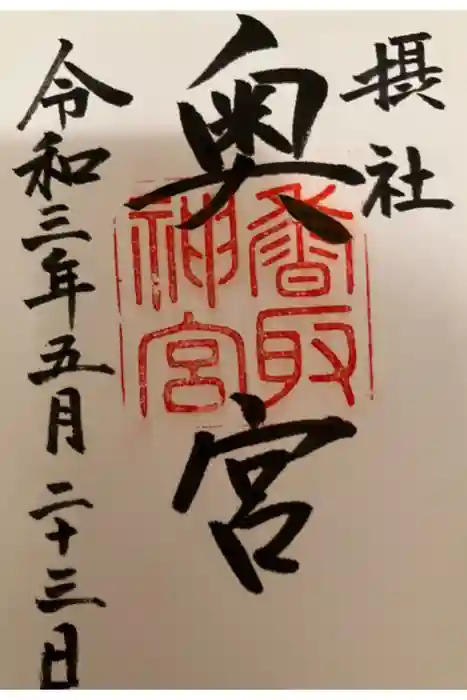 摂社
奥宮
香取
神宮
令和三年五月二十三日